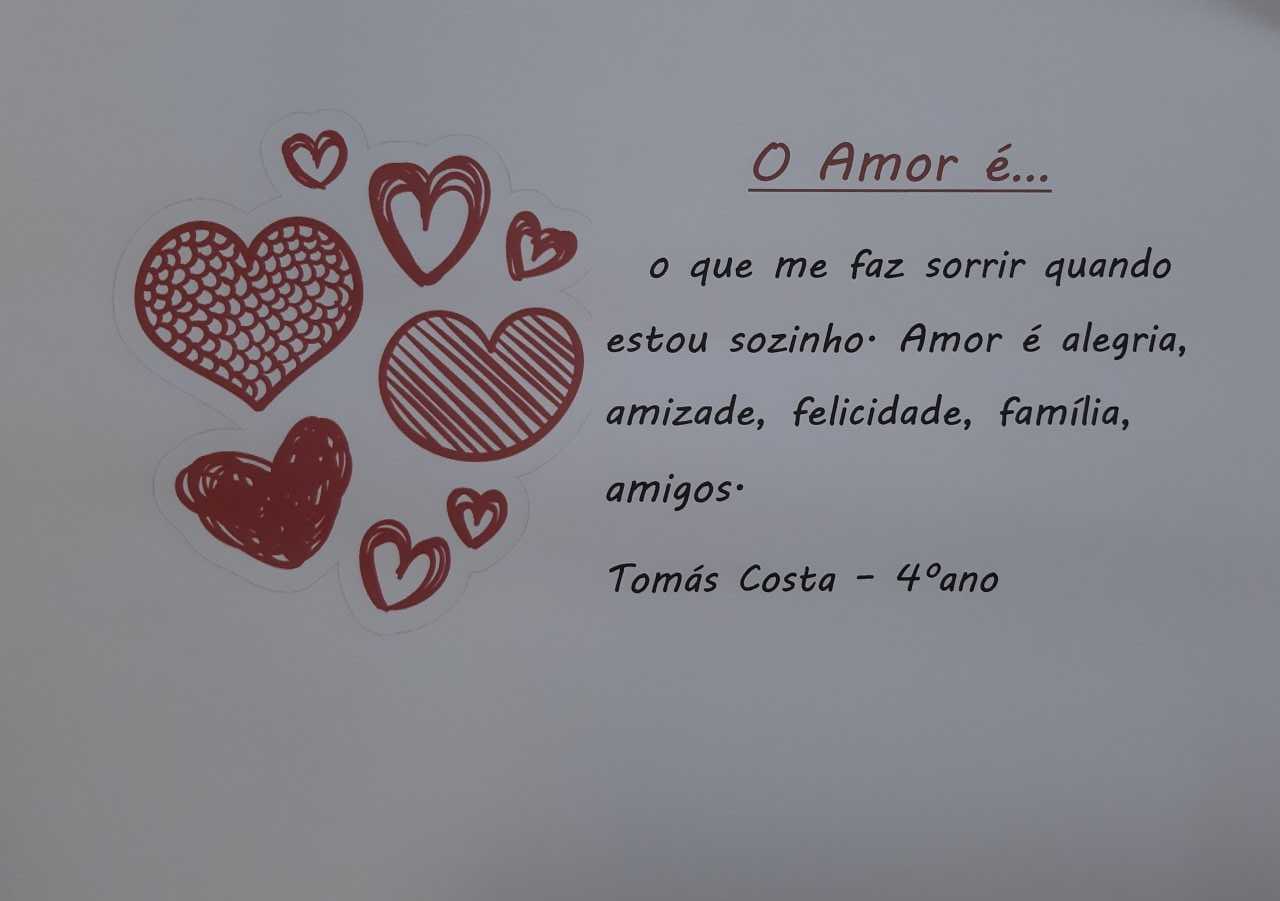 O Amor é...
o que me faz sorrir quando
estou sozinho. Amor é alegria,
amizade, felicidade, família,
amigos.
Tomás Costa - 4ºano